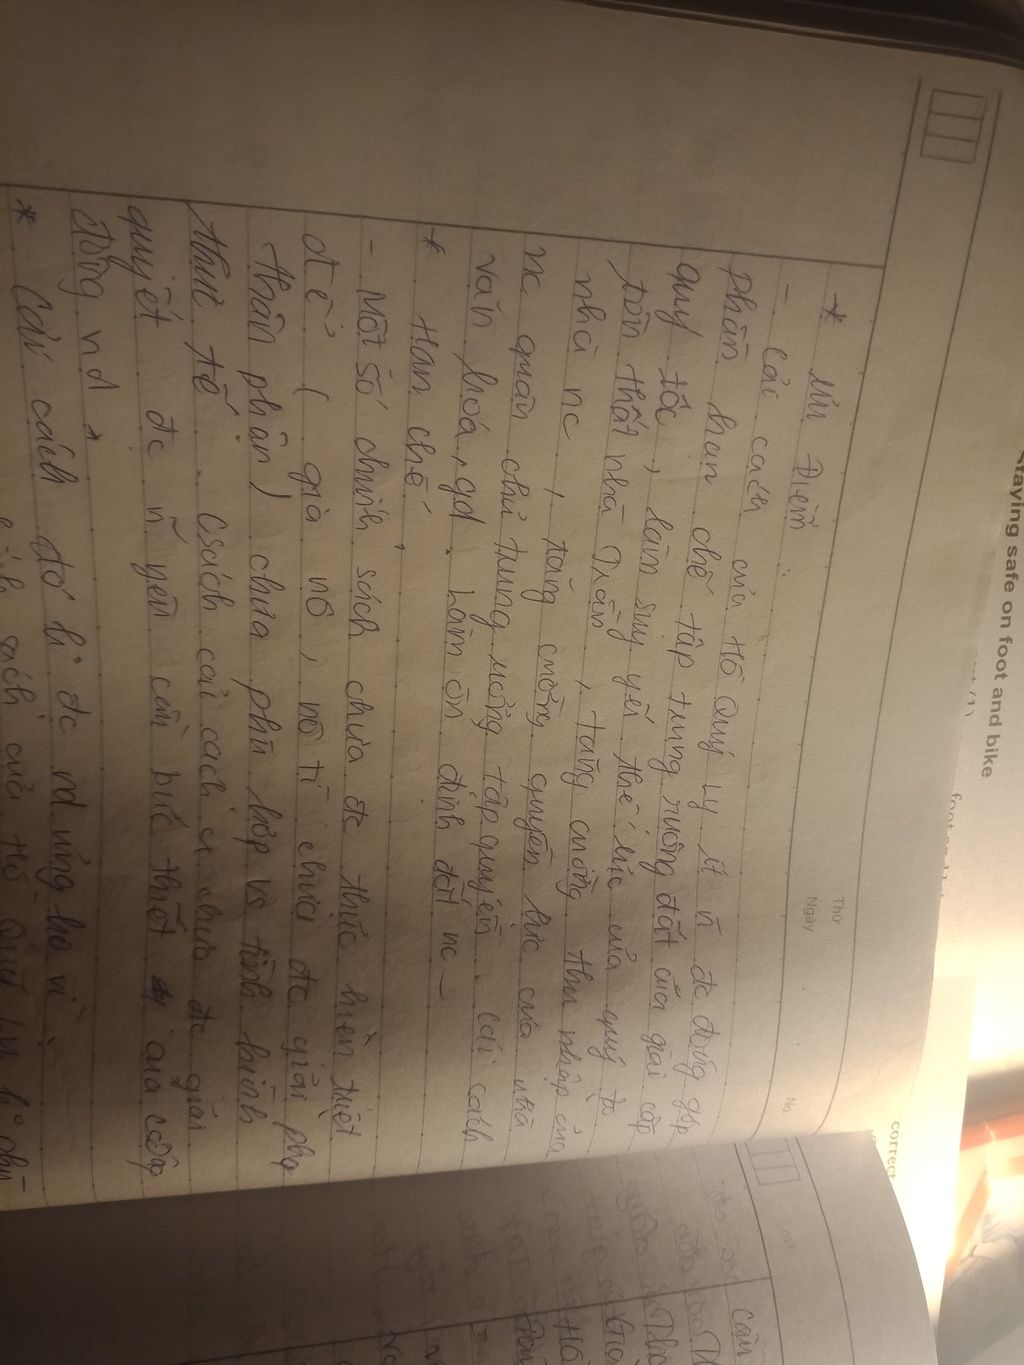 Staying safe on foot and bike
correct
Thứ
Ngày
No.
* ưu điểm
- Cải cách của Hồ Quý Ly ít n đc đóng góp
phần hạn chế tập trung ruộng đất của giai cấp
quý tộc, làm suy yếu thế lực của quý tộ
tôn thất nhà Trần, tăng cường thu nhập của
nhà nc, tăng cường quyền lực của nhà
nc quân chủ trung ương tập quyền. cải cách
văn hoá, gd. Làm ổn định đất nc
* Hạn chế
- Một số chính sách chưa đc thực hiện triệt
để ( gia nô, nô tì chưa đc giải phó
thân phận) chưa phù hợp vs tình hình
thực tế. Csách cải cách chưa đc giải
quyết đc n~ yêu cầu bức thiết của cộng
đồng nd
* Cải cách đó k đc nd ủng hộ vì:
sách của Hồ Quý Ly k